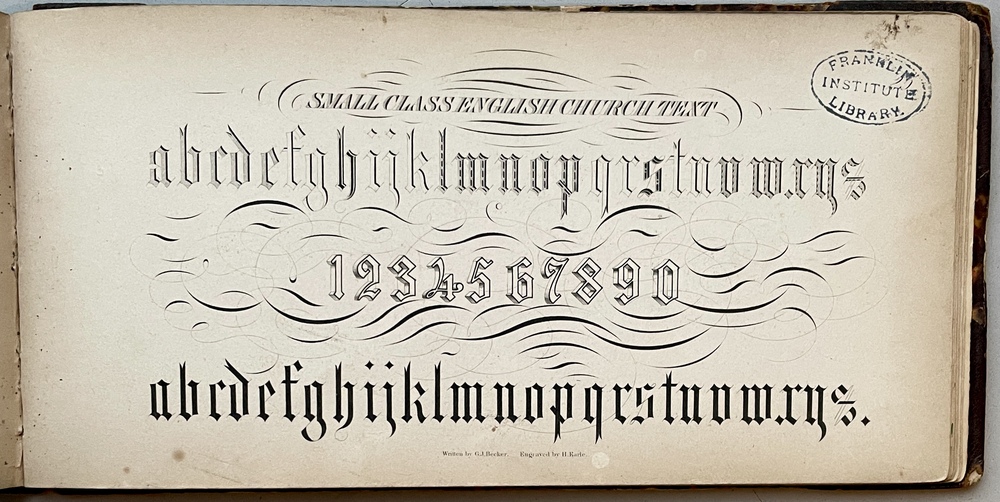 FRANKLIN
INSTITUTE
LIBRARY.
SMALL CLASS ENGLISH CHURCH TEXT
abcdefghijklmnopqrstuvwxyz
1234567890
abcdefghijklmnopqrstuvwxyz.
Written by G.J.Becker. Engraved by H.